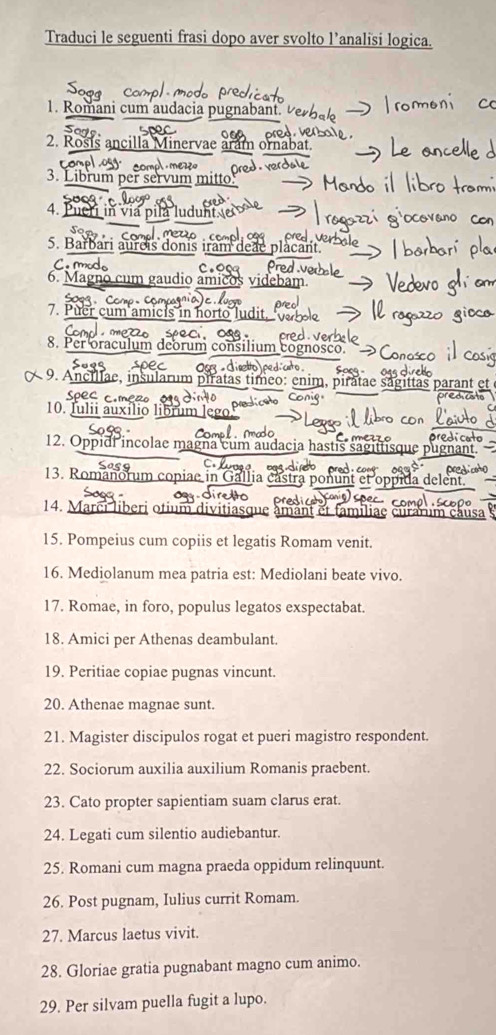 Traduci le seguenti frasi dopo aver svolto l'analisi logica.
Sogg compl. modo predicato
1. Romani cum audacia pugnabant. verbale → I romani
Sogg. spec ogg pred. verbale.
2. Rosis ancilla Minervae aram ornabat. → Le ancelle d
compl. ogg. compl. mezzo pred. verbale
3. Librum per servum mitto. → Mando il libro trami
sogg. c. logo ogg pred.
4. Pueri in via pila ludunt. verbale → I ragazzi giocavano con
sogg. compl. mezzo compl. ogg pred. verbale
5. Barbari aureis donis iram deae placant. → I barbari pla
C. modo C. ogg Pred. verbale
6. Magno cum gaudio amicos videbam. → Vedevo gli am
Sogg. Comp. compagnia c. luogo pred
7. Puer cum amicis in horto ludit. verbale → Il ragazzo gioca
Compl. mezzo speci. ogg. pred. verbale
8. Per oraculum deorum consilium cognosco. → Conosco il cosig
Sogg spec ogg. diretto predicato. Sogg. ogg diretto
9. Ancillae, insularum piratas timeo: enim, piratae sagittas parant et
spec c. mezzo ogg dirito conig. predicato
10. Iulii auxilio librum lego. predicato → Leggo il libro con l'aiuto d
Sogg. Compl. modo C. mezzo predicato
12. Oppidi incolae magna cum audacia hastis sagittisque pugnant.
Sogg C. luogo ogg. direto pred. cong ogg predicato
13. Romanorum copiae in Gallia castra ponunt et oppida delent.
Sogg ogg. diretto predicato conig spec compl. scopo
14. Marci liberi otium divitiasque amant et familiae curarum causa
15. Pompeius cum copiis et legatis Romam venit.
16. Mediolanum mea patria est: Mediolani beate vivo.
17. Romae, in foro, populus legatos exspectabat.
18. Amici per Athenas deambulant.
19. Peritiae copiae pugnas vincunt.
20. Athenae magnae sunt.
21. Magister discipulos rogat et pueri magistro respondent.
22. Sociorum auxilia auxilium Romanis praebent.
23. Cato propter sapientiam suam clarus erat.
24. Legati cum silentio audiebantur.
25. Romani cum magna praeda oppidum relinquunt.
26. Post pugnam, Iulius currit Romam.
27. Marcus laetus vivit.
28. Gloriae gratia pugnabant magno cum animo.
29. Per silvam puella fugit a lupo.